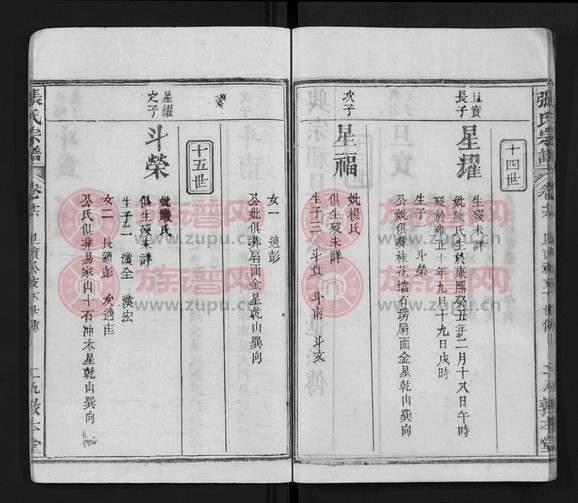 十四世
旦寶長子
星耀
生歿未詳
妣陳氏生於康熙癸丑年二月十八日午時
歿於雍正十年九月十九日戌時
生子一 斗榮
公妣俱葬桂花墻右塝扇面金星乾山巽向
次子
星福
妣楊氏
俱生歿未詳
生子三 斗貴 斗南 斗文
女一 適彭
公妣俱葬扇面金星乾山巽向
十五世
星耀之子
斗榮
妣氏
俱生歿未詳
生子二 漢全 漢宏
女二 長適彭 次適
公氏俱葬易家山十石冲木星乾山巽向
張氏宗譜
卷十六
敦本堂
族谱网
www.zupu.cn